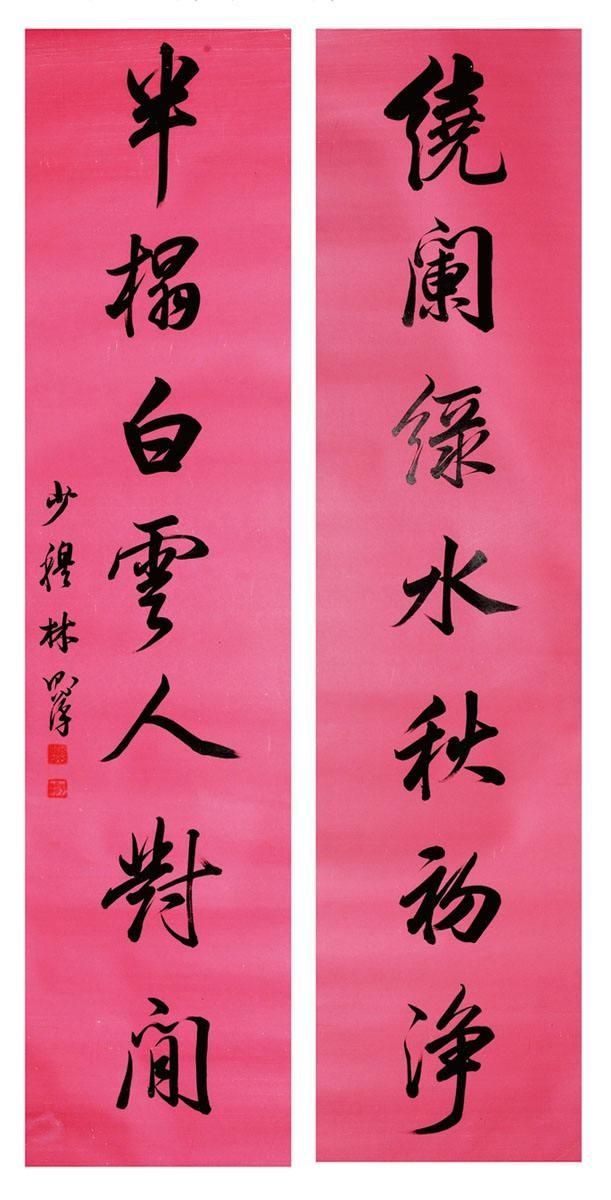 繞闌綠水秋初淨
半榻白雲人對閒
少穆林則徐